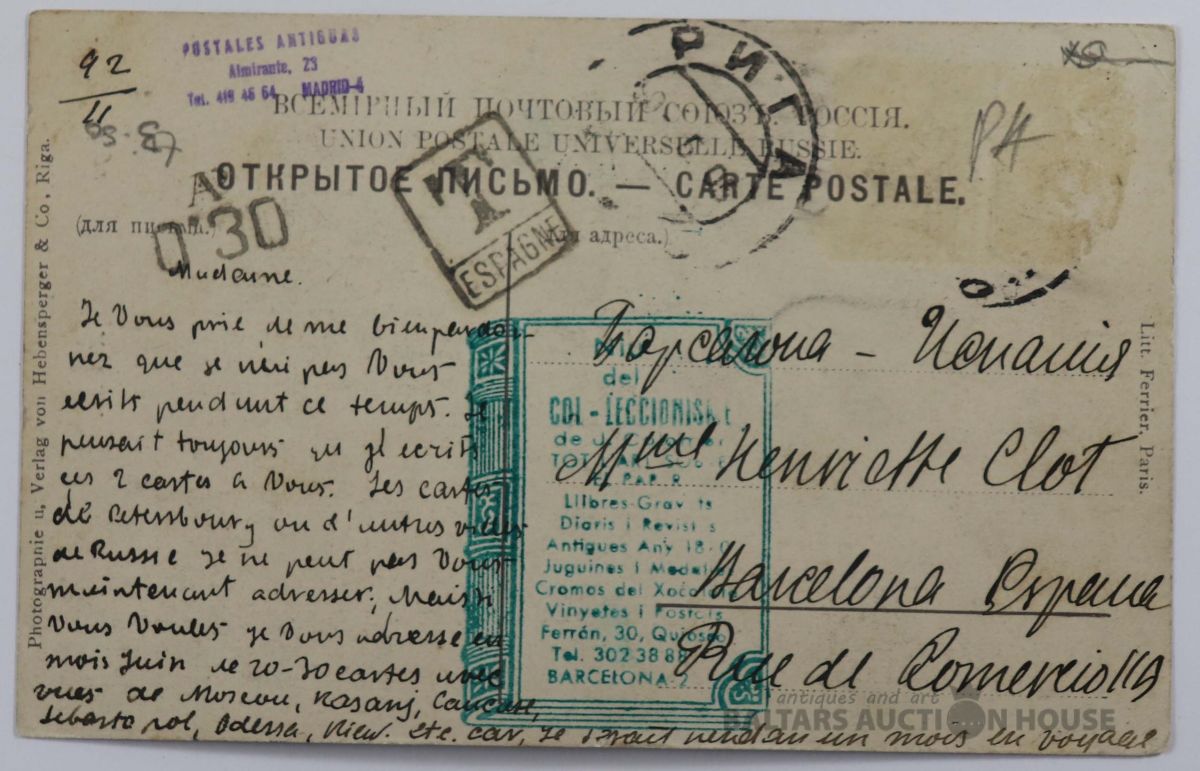 92
11
POSTALES ANTIGUAS
Almirante, 23
Tel. 419 46 64 MADRID-4
РИГА
ВСЕМІРНЫЙ ПОЧТОВЫЙ СОЮЗЪ. РОССІЯ.
UNION POSTALE UNIVERSELLE RUSSIE.
ОТКРЫТОЕ ПИСЬМО. — CARTE POSTALE.
PH
A
0'30
T
ESPAGNE
(для письма.)
(для адреса.)
Photographie u, Verlag von Hebensperger & Co., Riga.
Litt. Ferrier, Paris.
Madame.
Je Vous prie de me bien pardon-
nez que je n'ai pas Vous
ecrits pendant ce temps. Je
pensait toujours qu j'écrits
ces 2 cartes à Vous. Les cartes
de Petersbourg ou d'autres villes
de Russie je ne peut pas Vous
maintenant adresser, Mais si
Vous Voules je Vous adresse en
mois Juin de 20-30 cartes avec
vues de Moscou, Kasanj, Caucase,
Sebastopol, Odessa, Kiew. etc. car, je serait pendan un mois en voyage
Барселона - Испания
Mme Henriette Clot
Barcelona Espana
Rue de Comercio 119
del
COL-LECCIONISME
Llibres-Gravats
Diaris i Revistes
Antigues Any 18
Juguines i Medalles
Cromos del Xocolata
Vinyetes i Postals
Ferrán, 30, Quiosco
Tel. 302 38 8
BARCELONA-2
antiques and art
BALTARS AUCTION HOUSE